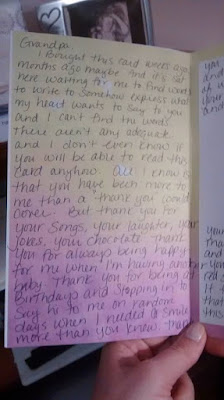 Grandpa,
I Bought this card weeks ago
months ago maybe and it's sat
here waiting for me to find words
to write to somehow express what
my heart wants to say to you
and I can't find the words
there aren't any adequate
and I don't even know if
you will be able to read this
card anyhow. All I know is
that you have been more to
me than a thank you could
cover. But thank you for
your songs, your laughter, your
jokes, your chocolate. Thank
you for always being happy
for me when I'm having another
baby. Thank you for being at
Birthdays and stopping in to
say hi to me on random
days when I needed a smile
more than you knew. Thank